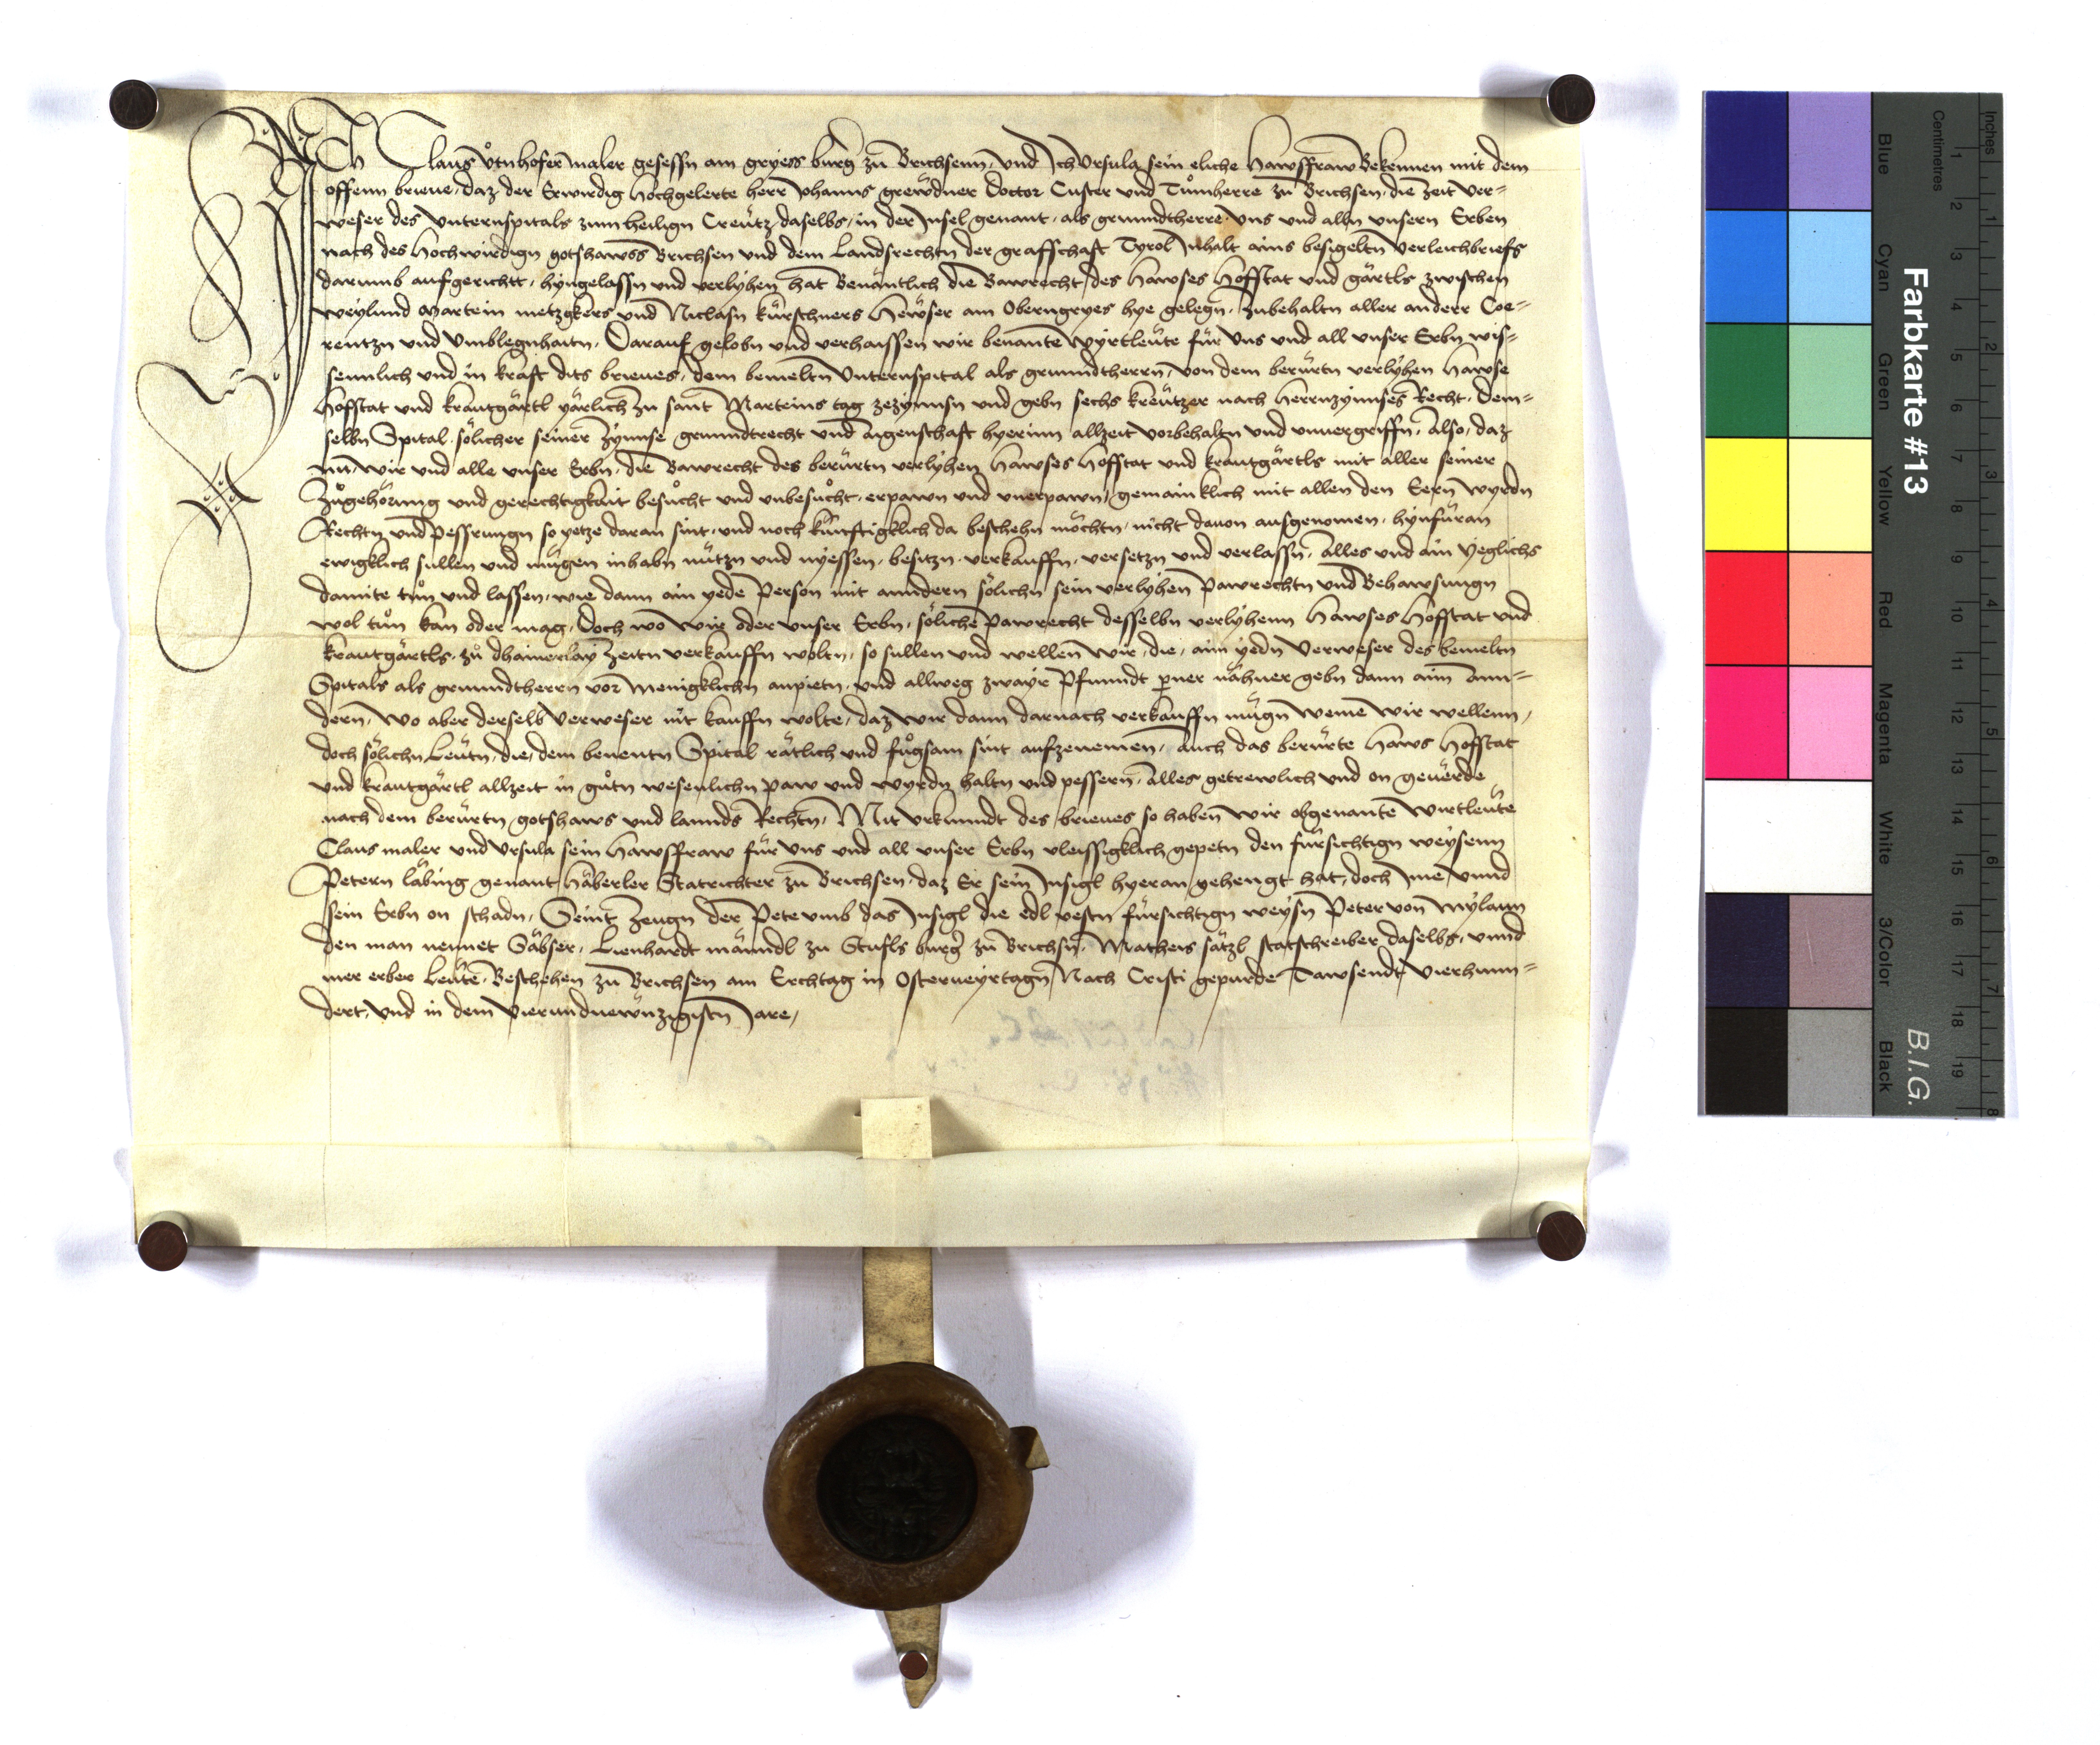 Ich Claus Utnhofer maler gesessn am gryess burger zu Brichsenn, und Ich Ursula sein eliche Hawsffraw Bekennen mit dem
offenn brieue, daz der Erwirdig Hochgelerte herr Johanns grewdner Doctor Custer und Tůmherre zu Brichsen, die zeit ver=
weser des Unternspitals zum heilign Creütz daselbs, in der Insel genant, als grundtherre, uns und alln unsern Erben
nach des Hochwirdign gotshawss Brichsen und dem Landsrechtn der graffschaft Tyrol Inhalt ains besigeltn verleichbriefs
darumb aufgericht, hyngelassn und verlyhen hat Benäntlich die Bawrecht des Hawses Hofstat und gärtls zwischen
weylund Martein metzgkers und Niclasn kürschners Hewser am Oberngryes hye gelegn, zubehaltn aller anderr Coe=
rentzn und Umblegnhaitn. Darauf gelobn und verhaissen wir benante Wyrtleute für uns und all unser Erbn wis=
senntlich und in kraft dits brieues, dem bemeltn Unternspital als grundtherrn, von dem berürtn verlyhen Hawse
Hofstat und krautgärtl yärlich zu sant Marteins tag zezynnsn und gebn sechs kreützer nach Herrnzynnses Recht. Dem=
selbn Spital sölicher seiner zynnse grundtrecht und aigenschaft hyerinn allzeit vorbehaltn und unuergriffn, Also, daz
nu, wir und alle unser Erbn, die Bawrecht des berürtn verlyhen Hawses Hofstat und krautgärtls mit aller seiner
Zugehörung und gerechtigkait besůcht und unbesůcht, erpawn und unerpawn, gemainklich mit allen den Eern wyrdn
Rechtn und Pessrungn so yetze daran sint, und noch künftigklich da beschehn möchtn, nicht dauon ausgenomen, hynfüran
ewigklich sullen und mugen inhabn nützn und nyessen, besitzn, verkauffn, versetzn und verlassn, Alles und ain yeglichs
damite tůn und lassen, wie dann ain yede Person mit anndern sölichn sein verlyhen Pawrechtn und Behawsungn
wol tůn kan oder mag, Doch wo wir oder unser Erbn, söliche Pawrecht desselbn verlyhenn Hawses Hofstat und
krautgärtls, zů dhainerlay zeitn verkauffn woltn, so sullen und wellen wir, die, aim yedn Verweser des bemeltn
Spitals als grundtherrn vor menigklichn anpietn, und allweg zwayr Pfunndt perner nähner gebn dann aim ann=
dern, Wo aber derselb Verweser nit kauffn wolte, daz wir dann darnach verkauffn mügn weme wir wellenn,
doch sölichn Leutn, die, dem benentn Spital rätlich und fůgsam sint aufzenemen, Auch das berürte Haws Hofstat
und krautgärtl allzeit in gůtn wesenlichn paw und wyrdn haltn und pessern, Alles getrewlich und on geuerde
nach dem berürtn gotshaws und lannds Rechtn, Mit urkundt des brieues so haben wir obgenante Wirtleute
Claus maler und Ursula sein Hawsffraw für uns und all unser Erbn vleissigklich gepetn den fürsichtign weysenn
Petern läbing genant Häberler Statrichter zu Brichsen, daz Er sein Insigl hyeran gehengt hat, doch Ime unnd
sein Erbn on schadn, Seint Zeugn der Pete umb das Insigl die edl vestn fürsichtign weysn Peter von Mylaun
den man nennet Säbser, Lienhardt männdl zu Stufls burger zu Brichsn, Matheis sätzl statschreiber daselbs, unnd
mer erber Leute, Beschehen zu Brichsen am Erchtag in Osterueyrtagn Nach Cristi gepurde Tawsendt Vierhunn=
dert, und in dem Vierundnewnzigistn Jare,
Farbkarte #13
B.I.G.
Centimetres
Inches
Blue
Cyan
Green
Yellow
Red
Magenta
White
3/Color
Black
1 2 3 4 5 6 7 8 9 10 11 12 13 14 15 16 17 18 19
1 2 3 4 5 6 7 8